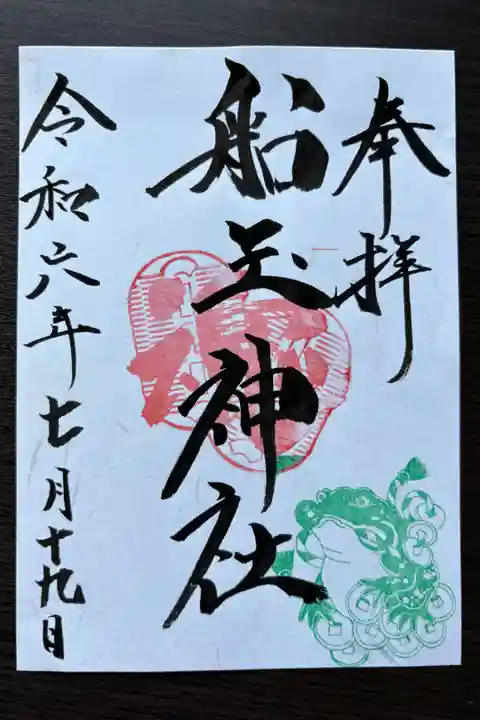 奉拝
船玉神社
令和六年七月十九日